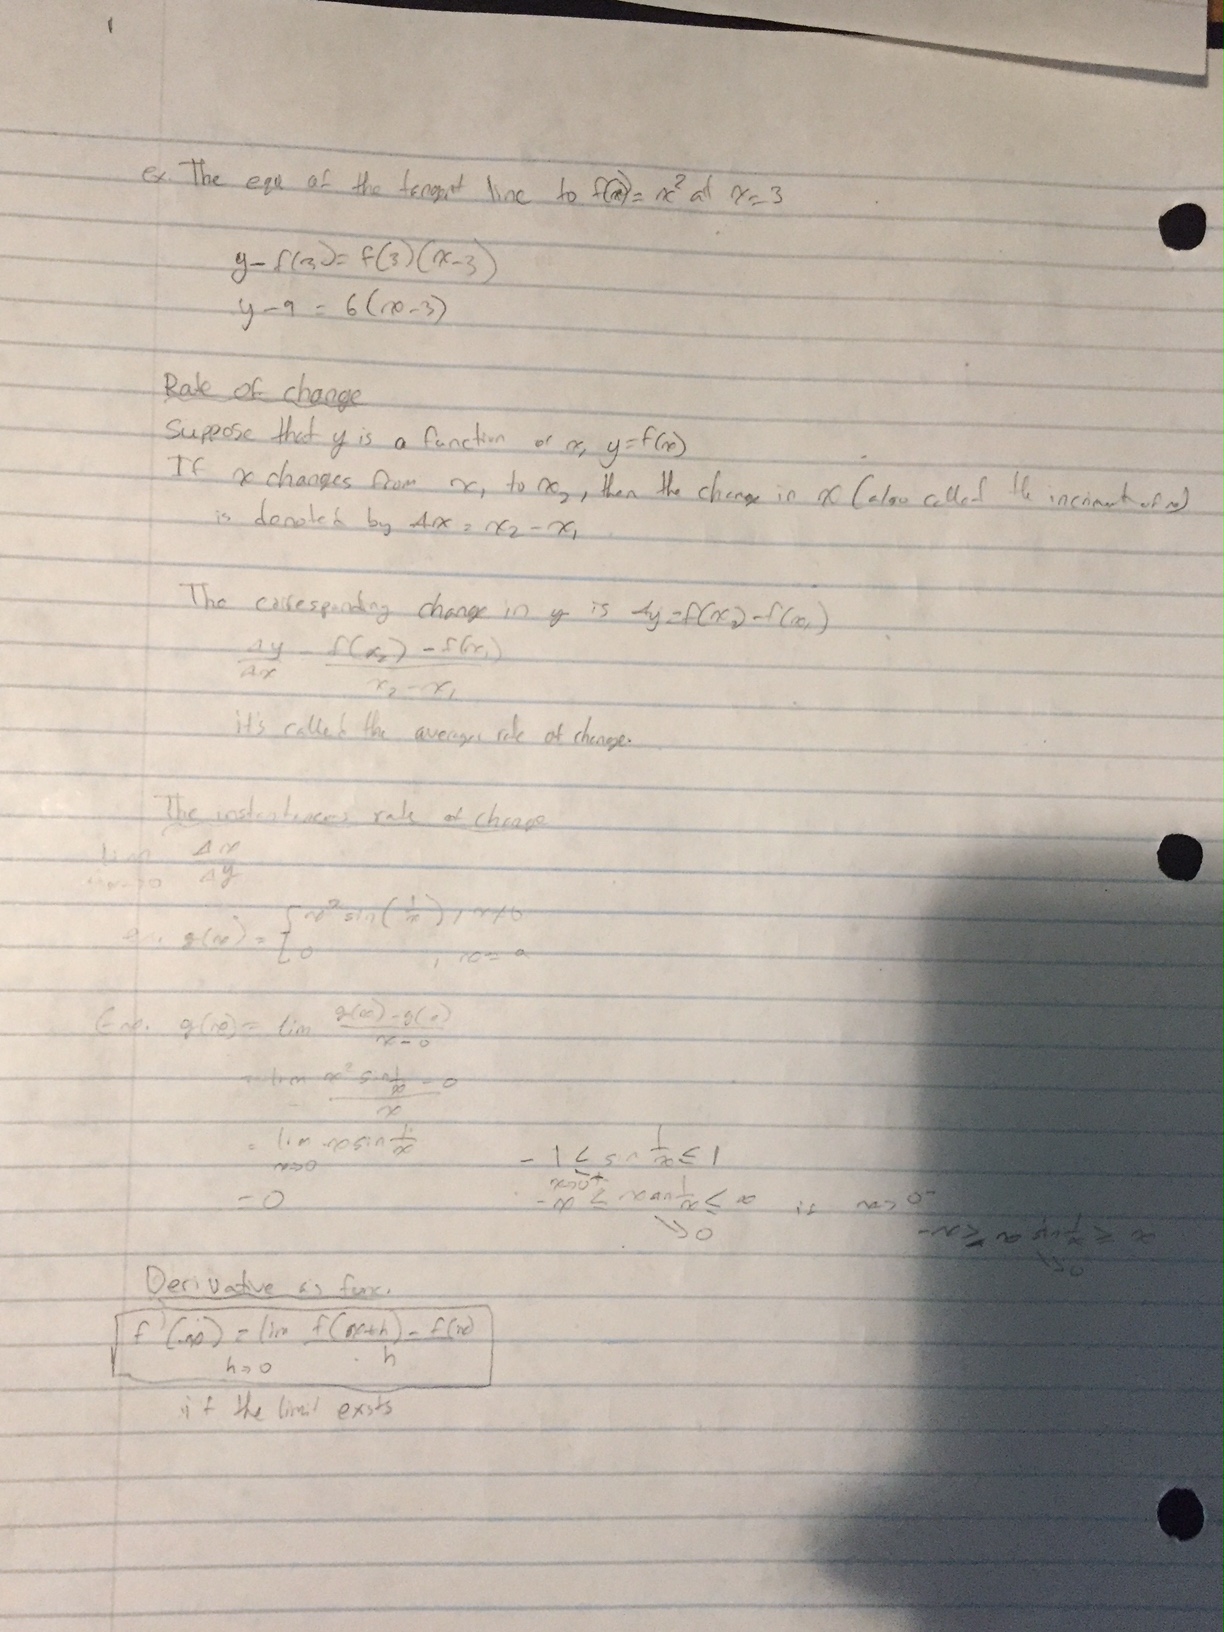 ex. The equ of the tangent line to f(x) = x² at x = 3
y - f(3) = f(3)(x-3)
y - 9 = 6(x-3)
Rate of change
Suppose that y is a function of x, y = f(x)
If x changes from x₁ to x₂, then the change in x (also called the increment of x)
is denoted by Δx = x₂ - x₁
The corresponding change in y is Δy = f(x₂) - f(x₁)
Δy/Δx = f(x₂) - f(x₁) / x₂ - x₁
it's called the average rate of change.
The instantaneous rate of change
lim Δx/Δy
ex. g(x) = { x² sin(1/x), x≠0
0, x = 0
g(x) = lim g(x) - g(0) / x - 0
= lim x² sin 1/x - 0 / x
= lim x sin 1/x
= 0
Derivative as func.
f'(x) = lim f(x+h) - f(x) / h
h→0
if the limit exists